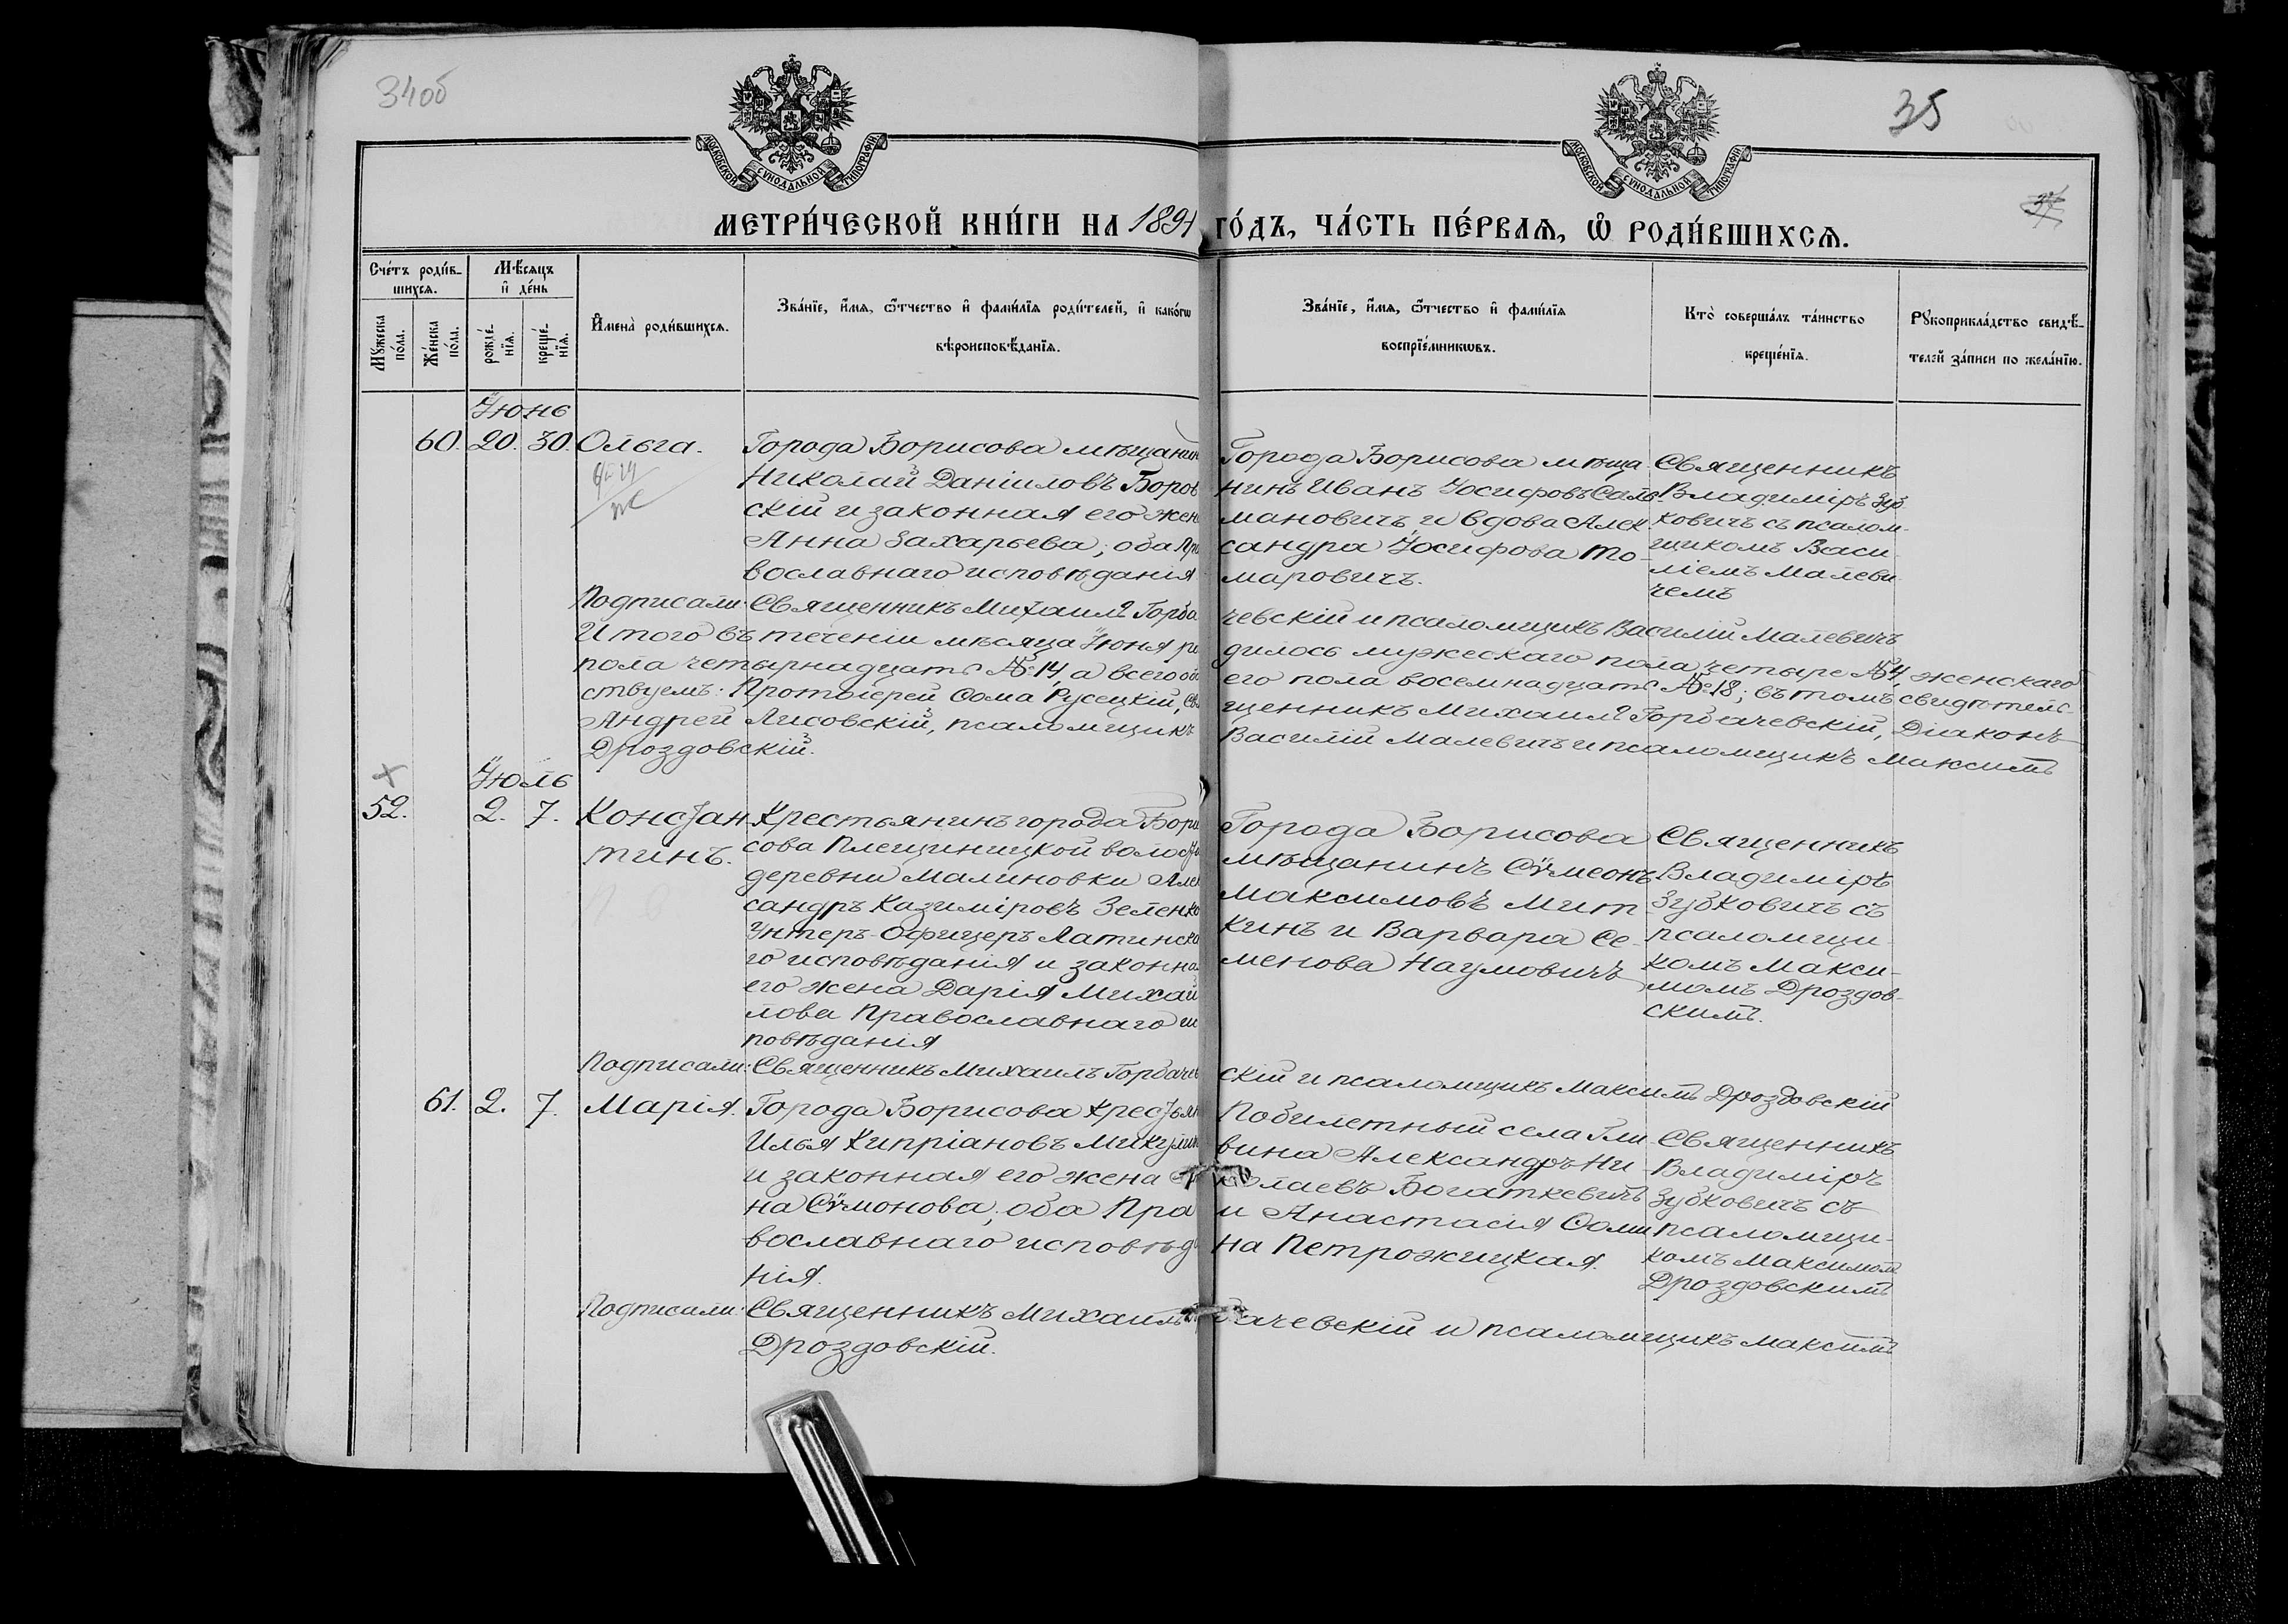 34об
35
МОСКОВСКОЙ СѴНОДАЛЬНОЙ ТИПОГРАФІИ
МОСКОВСКОЙ СѴНОДАЛЬНОЙ ТИПОГРАФІИ
МЕТРИ́ЧЕСКОЙ КНИ́ГИ НА 1891 ГО́ДЪ, ЧА́СТЬ ПЕ́РВАѦ, Ѡ҆ РОДИ́ВШИХСѦ.
Сче́тъ роди́в-
шихсѧ.
Мꙋ́жеска по́ла.
Же́нска по́ла.
Мѣ́сѧцъ
и҆ де́нь
рожде́-
нїѧ.
креще́-
нїѧ.
И҆мена̀ роди́вшихсѧ.
Зва́нїе, и҆́мѧ, ѻ҆́тчество и҆ фамі́лїѧ роди́телей, и҆ како́гѡ
вѣроисповѣ́данїѧ.
Зва́нїе, и҆́мѧ, ѻ҆́тчество и҆ фамі́лїѧ
воспрїе́мникѡвъ.
Кто̀ соверша́лъ та́инство
креще́нїѧ.
Рꙋкоприкла́дство свидѣ́-
телей за́писи по жела́нїю.
Іюнь
60. 20. 30. Ольга.
Города Борисова мѣщанин
Николай Даніиловъ Боров
скій и законная его жен
Анна Захарьева; оба Пра
вославнаго исповѣданія
Города Борисова мѣща
нинъ Иванъ Іосифовъ Саль-
мановичъ и вдова Алек-
сандра Іосифова То-
маровичъ.
Священникъ
Владиміръ Зуб
ковичъ съ псалом-
щикомъ Васи
ліемъ Малеви
чемъ
Подписали: Священникъ Михаилъ Горба чевскій и псаломщикъ Василій Малевичъ
Итого въ теченіи мѣсяца Іюня ро дилось мужескаго пола четыре №4, женскаго
пола четырнадцать №14, а всего обо его пола восемнадцать №18; въ томъ свидѣтель-
ствуемъ: Протоіерей Ѳома Русецкій, Свя щенникъ Михаилъ Горбачевскій, Діаконъ
Андрей Лисовскій, псаломщикъ Василій Малевичъ и псаломщикъ Максимъ
Дроздовскій.
Іюль
52. 2. 7. Констан-
тинъ.
Крестьянинъ города Бори
сова Плещиницкой волости
деревни Малиновки Алек
сандръ Казиміровъ Зеленко
Унтеръ-Офицеръ Латинска
го исповѣданія и законная
его жена Дарія Михай
лова Православнаго ис
повѣданія
Города Борисова
мѣщанинъ Сѵмеонъ
Максимовъ Мит-
кинъ и Варвара Се-
менова Наумовичъ
Священникъ
Владиміръ
Зубковичъ съ
псаломщи-
комъ Макси-
момъ Дроздов-
скимъ.
Подписали: Священникъ Михаилъ Горбачев скій и псаломщикъ Максимъ Дроздовскій
61. 2. 7. Марія.
Города Борисова Крестьян
Илья Кипріановъ Микулич
и законная его жена
на Сѵмонова; оба Пра
вославнаго исповѣда
нія.
Побилетный села Гли
вина Александръ Ни-
колаевъ Богаткевичъ
и Анастасія Ѳоми
на Петрожицкая.
Священникъ
Владиміръ
Зубковичъ съ
псаломщи-
комъ Максимомъ
Дроздовскимъ
Подписали: Священникъ Михаилъ Горбачевскій и псаломщикъ Максимъ
Дроздовскій.